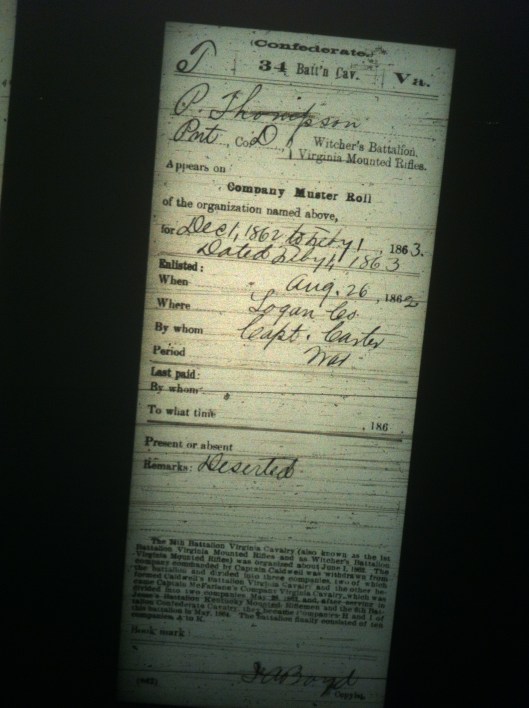 Confederate.
T | 34 Batt'n Cav. | Va.
P. Thompson
Pvt, Co. D, Witcher's Battalion,
Virginia Mounted Rifles.
Appears on
Company Muster Roll
of the organization named above,
for Dec 1, 1862 to Feby 1, 1863.
Dated Feby 4, 1863
Enlisted:
When Aug. 26, 1862
Where Logan Co.
By whom Capt. Carter
Period War
Last paid:
By whom
To what time , 186
Present or absent
Remarks: Deserted
The 34th Battalion Virginia Cavalry (also known as the 1st
Battalion Virginia Mounted Rifles and as Witcher's Battalion
Virginia Mounted Rifles) was organized about June 1, 1862. The
company commanded by Captain Caldwell was withdrawn from
the battalion and divided into three companies, two of which
formed Caldwell's Battalion Virginia Cavalry and the other be-
came Captain McFarlane's Company Virginia Cavalry, which was
divided into two companies and after serving in
Kentucky Mounted Riflemen and the
Confederate Cavalry, they became Companies H and I of
this battalion in May, 1864. The battalion finally consisted of ten
companies, A to K.
Book mark:
Boyd
Copyist.